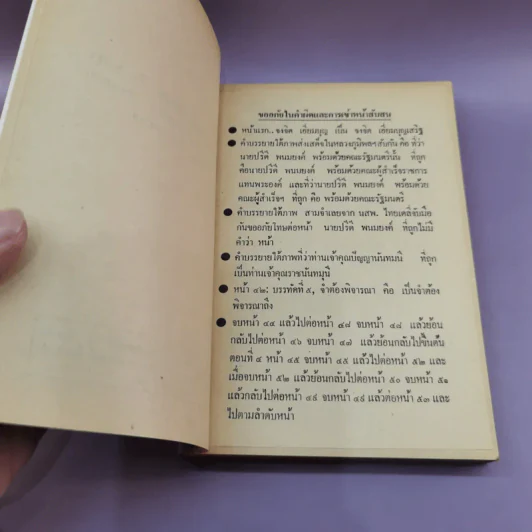 ขออภัยในคำผิดและการเข้าหน้าสับสน
● หน้าแรก.. จงจิต เยี่ยมบุญ เป็น จงจิต เยี่ยมบุญเสริฐ
● คำบรรยายใต้ภาพส่งเสด็จในหลวงภูมิพลฯสับกัน คือ ที่ว่า
นายปรีดี พนมยงค์ พร้อมด้วยคณะรัฐมนตรีนั้น ที่ถูก
คือนายปรีดี พนมยงค์ พร้อมด้วยคณะผู้สำเร็จราชการ
แทนพระองค์ และที่ว่านายปรีดี พนมยงค์ พร้อมด้วย
คณะผู้สำเร็จฯ ที่ถูก คือ พร้อมด้วยคณะรัฐมนตรี
● คำบรรยายใต้ภาพ สามจำเลยจาก นสพ. ไทยเดลี่จับมือ
กันขออภัยโทษต่อหน้า นายปรีดี พนมยงค์ ที่ถูกไม่มี
คำว่า หน้า
● คำบรรยายใต้ภาพที่ว่าท่านเจ้าคุณปัญญานันทมุนี ที่ถูก
เป็นท่านเจ้าคุณราชนันทมุนี
● หน้า ๔๒: บรรทัดที่ ๕, จำต้องพิจารณา คือ เป็นจำต้อง
พิจารณาถึง
● จบหน้า ๔๔ แล้วไปต่อหน้า ๔๗ จบหน้า ๔๘ แล้วย้อน
กลับไปต่อหน้า ๔๖ จบหน้า ๔๗ แล้วย้อนกลับไปขึ้นต้น
ตอนที่ ๔ หน้า ๔๕ จบหน้า ๔๕ แล้วไปต่อหน้า ๕๒ และ
เมื่อจบหน้า ๕๒ แล้วย้อนกลับไปต่อหน้า ๕๐ จบหน้า ๕๑
แล้วกลับไปต่อหน้า ๔๙ จบหน้า ๔๙ แล้วต่อหน้า ๕๓ และ
ไปตามลำดับหน้า